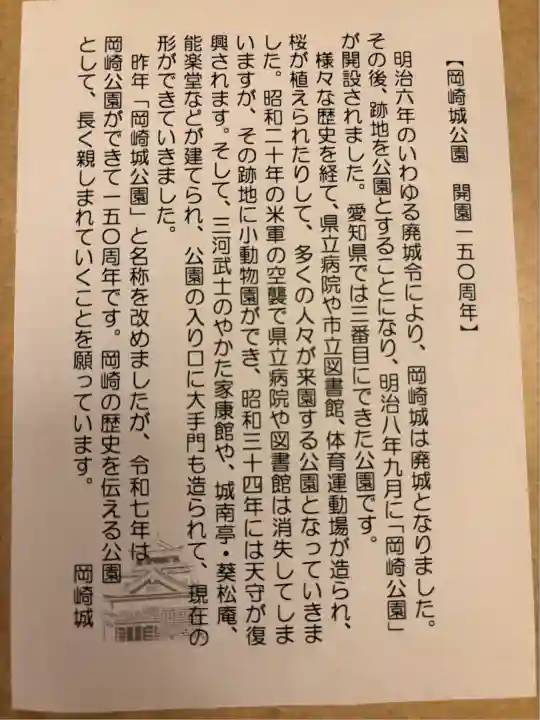 【岡崎城公園　開園一五〇周年】
　明治六年のいわゆる廃城令により、岡崎城は廃城となりました。
その後、跡地を公園とすることになり、明治八年九月に「岡崎公園」
が開設されました。愛知県では三番目にできた公園です。
　様々な歴史を経て、県立病院や市立図書館、体育運動場が造られ、
桜が植えられたりして、多くの人々が来園する公園となっていきま
した。昭和二十年の米軍の空襲で県立病院や図書館は消失してしま
いますが、その跡地に小動物園ができ、昭和三十四年には天守が復
興されます。そして、三河武士のやかた家康館や、城南亭・葵松庵、
能楽堂などが建てられ、公園の入り口に大手門も造られて、現在の
形ができていきました。
　昨年「岡崎城公園」と名称を改めましたが、令和七年は
岡崎公園ができて一五〇周年です。岡崎の歴史を伝える公園
として、長く親しまれていくことを願っています。
岡崎城